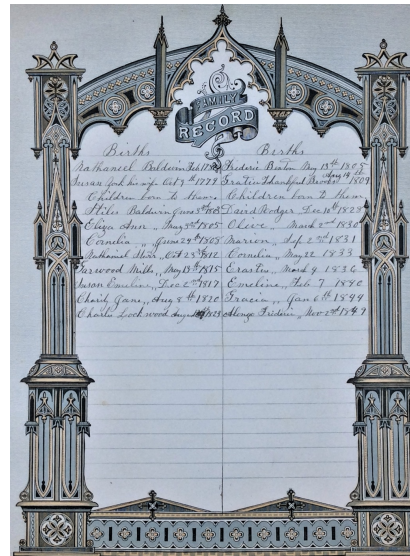 FAMILY
RECORD
Births
Nathaniel Baldwin Feb
Susan York his wife Oct 9th 1777
Children born to them
Stiles Baldwin June
Eliza Ann " Aug 1805
Cornelia " June 24th 1808
Nathaniel Oct 23d 1812
May 13th 1815
Susan Emeline " Dec 2nd 1817
Charity Jane " Aug 8th 1820
Charles Lockwood Aug 1823
Births
Frederic Beston May 13th 1805
Thankful Aug 19th 1809
Children born to them
David Rodger Dec 16th 1828
Olive March 2nd 1830
Marion " Sep 2nd 1831
Cornelia " May 22 1833
Erastus " March 9 1836
Emeline " Feb 7 1840
Gracia " Jan 6th 1844
Alonzo Frederic " Nov 2nd 1847